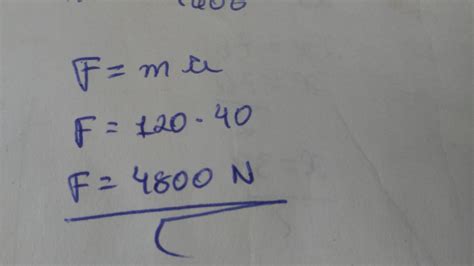 F = m a
F = 120 · 40
F = 4800 N